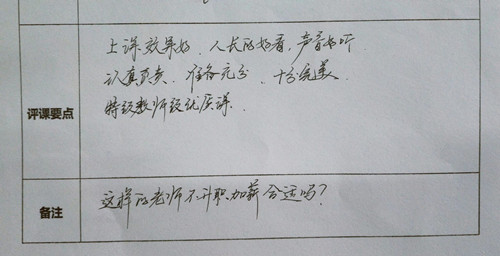 上课效果好、人长的好看，声音好听
认真负责、准备充分、十分完美、
评课要点
特级教师级优质课.
备注
这样的老师不升职加薪合适吗?